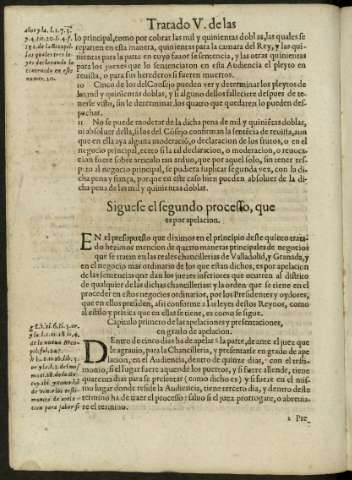 Tratado V. de las
lo principal, como por cobrar las mil y quinientas doblas, las quales se
reparten en esta manera, quinientas para la camara del Rey, y las qui-
nientas para la parte en cuyo favor se sentencia, y las otras quinientas
para los juezes que lo sentenciaron en esta Audiencia el pleyto en
revista, o para sus herederos si fueren muertos.
10 Cinco de los del Consejo pueden ver y determinar los pleytos de
las mil y quinientas doblas, y si alguno dellos fallescere despues de te-
nerse visto, sin le determinar los quatro que quedaren lo pueden des-
pachar.
11 No se puede moderar de la dicha pena de mil y quinientas doblas,
ni absolver della, si los del Cōsejo confirman la sentēcia de revista, aun
que en ella aya alguna moderaciō, o declaracion de los frutos, o en el
negocio principal, excepto si la tal declaracion, o moderacion, o revoca-
cion fuere sobre articulo tan arduo, que por aquel solo, sin tener res-
pecto al negocio principal, se pudiera suplicar segunda vez, con la di-
cha pena y fiança, porque en este caso bien pueden absolver de la di-
cha pena de las mil y quinientas doblas.
Siguese el segundo processo, que
es por apelacion.
EN el presupuesto que diximos en el principio deste quinto trata-
do hezimos mencion de quatro maneras principales de negocios
que se tratan en las reales chancillerias de Valladolid, y Granada, y
en el negocio mas ordinario de los que estan dichos, es por apelacion
de las sentencias que dan los juezes inferiores que ocurren al distrito
de qualquier de las dichas chancillerias: y la orden que se tiene en el
proceder en estos negocios ordinarios, por los Presidentes y oydores,
que en ellos presiden, assi conforme a la leyes destos Reynos, como
al estilo y pratica que en ellas se tiene, es como se sigue.
Capitulo primero de las apelaciones y presentaciones,
en grado de apelacion.
DEntro de cinco dias ha de apelar la parte, de ante el juez que
le agravio, para la Chancilleria, y presentarse en grado de ape
lacion, en el Audiencia, dentro de quinze dias, con el testi-
monio, si el lugar fuere aquende los puertos, y si fuere allende, tiene
quarenta dias para se presentar (como dicho es) y si fuere en el mis-
mo lugar donde reside la Audiencia, tiene tercero dia, y dentro deste
termino ha de traer el processo: salvo si el juez prorrogare, o abrevia-
re el termino.
2 Pre